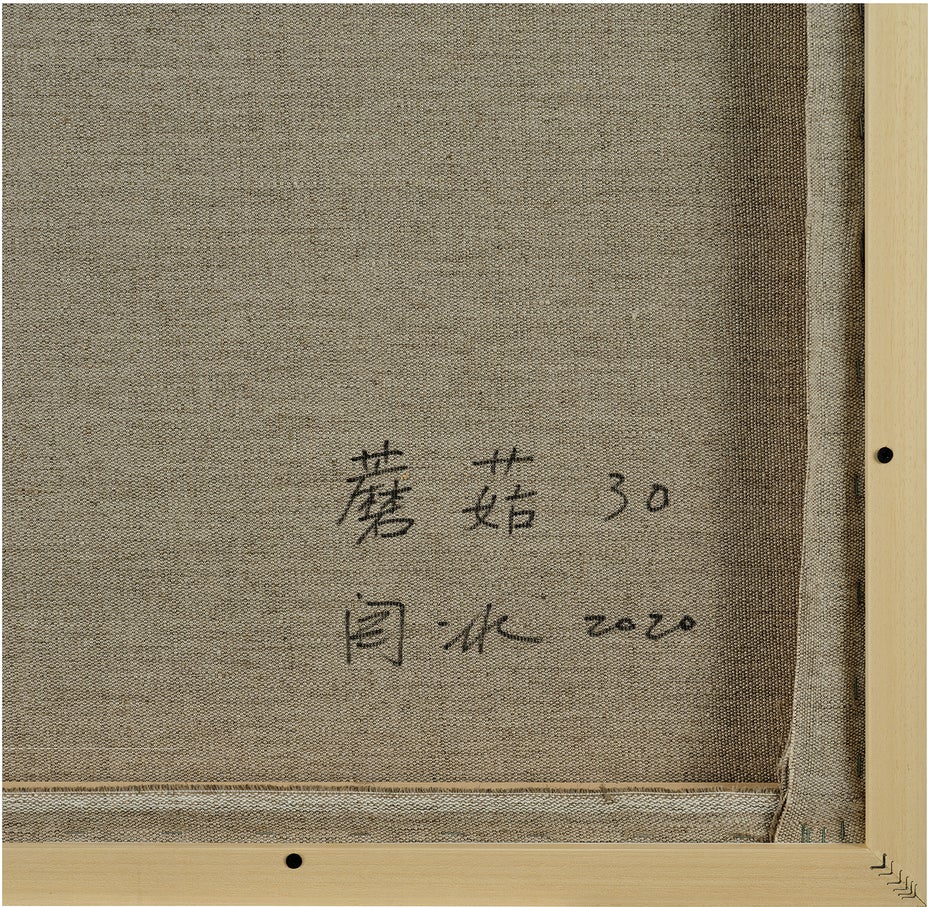 蘑菇 30
闫冰 2020